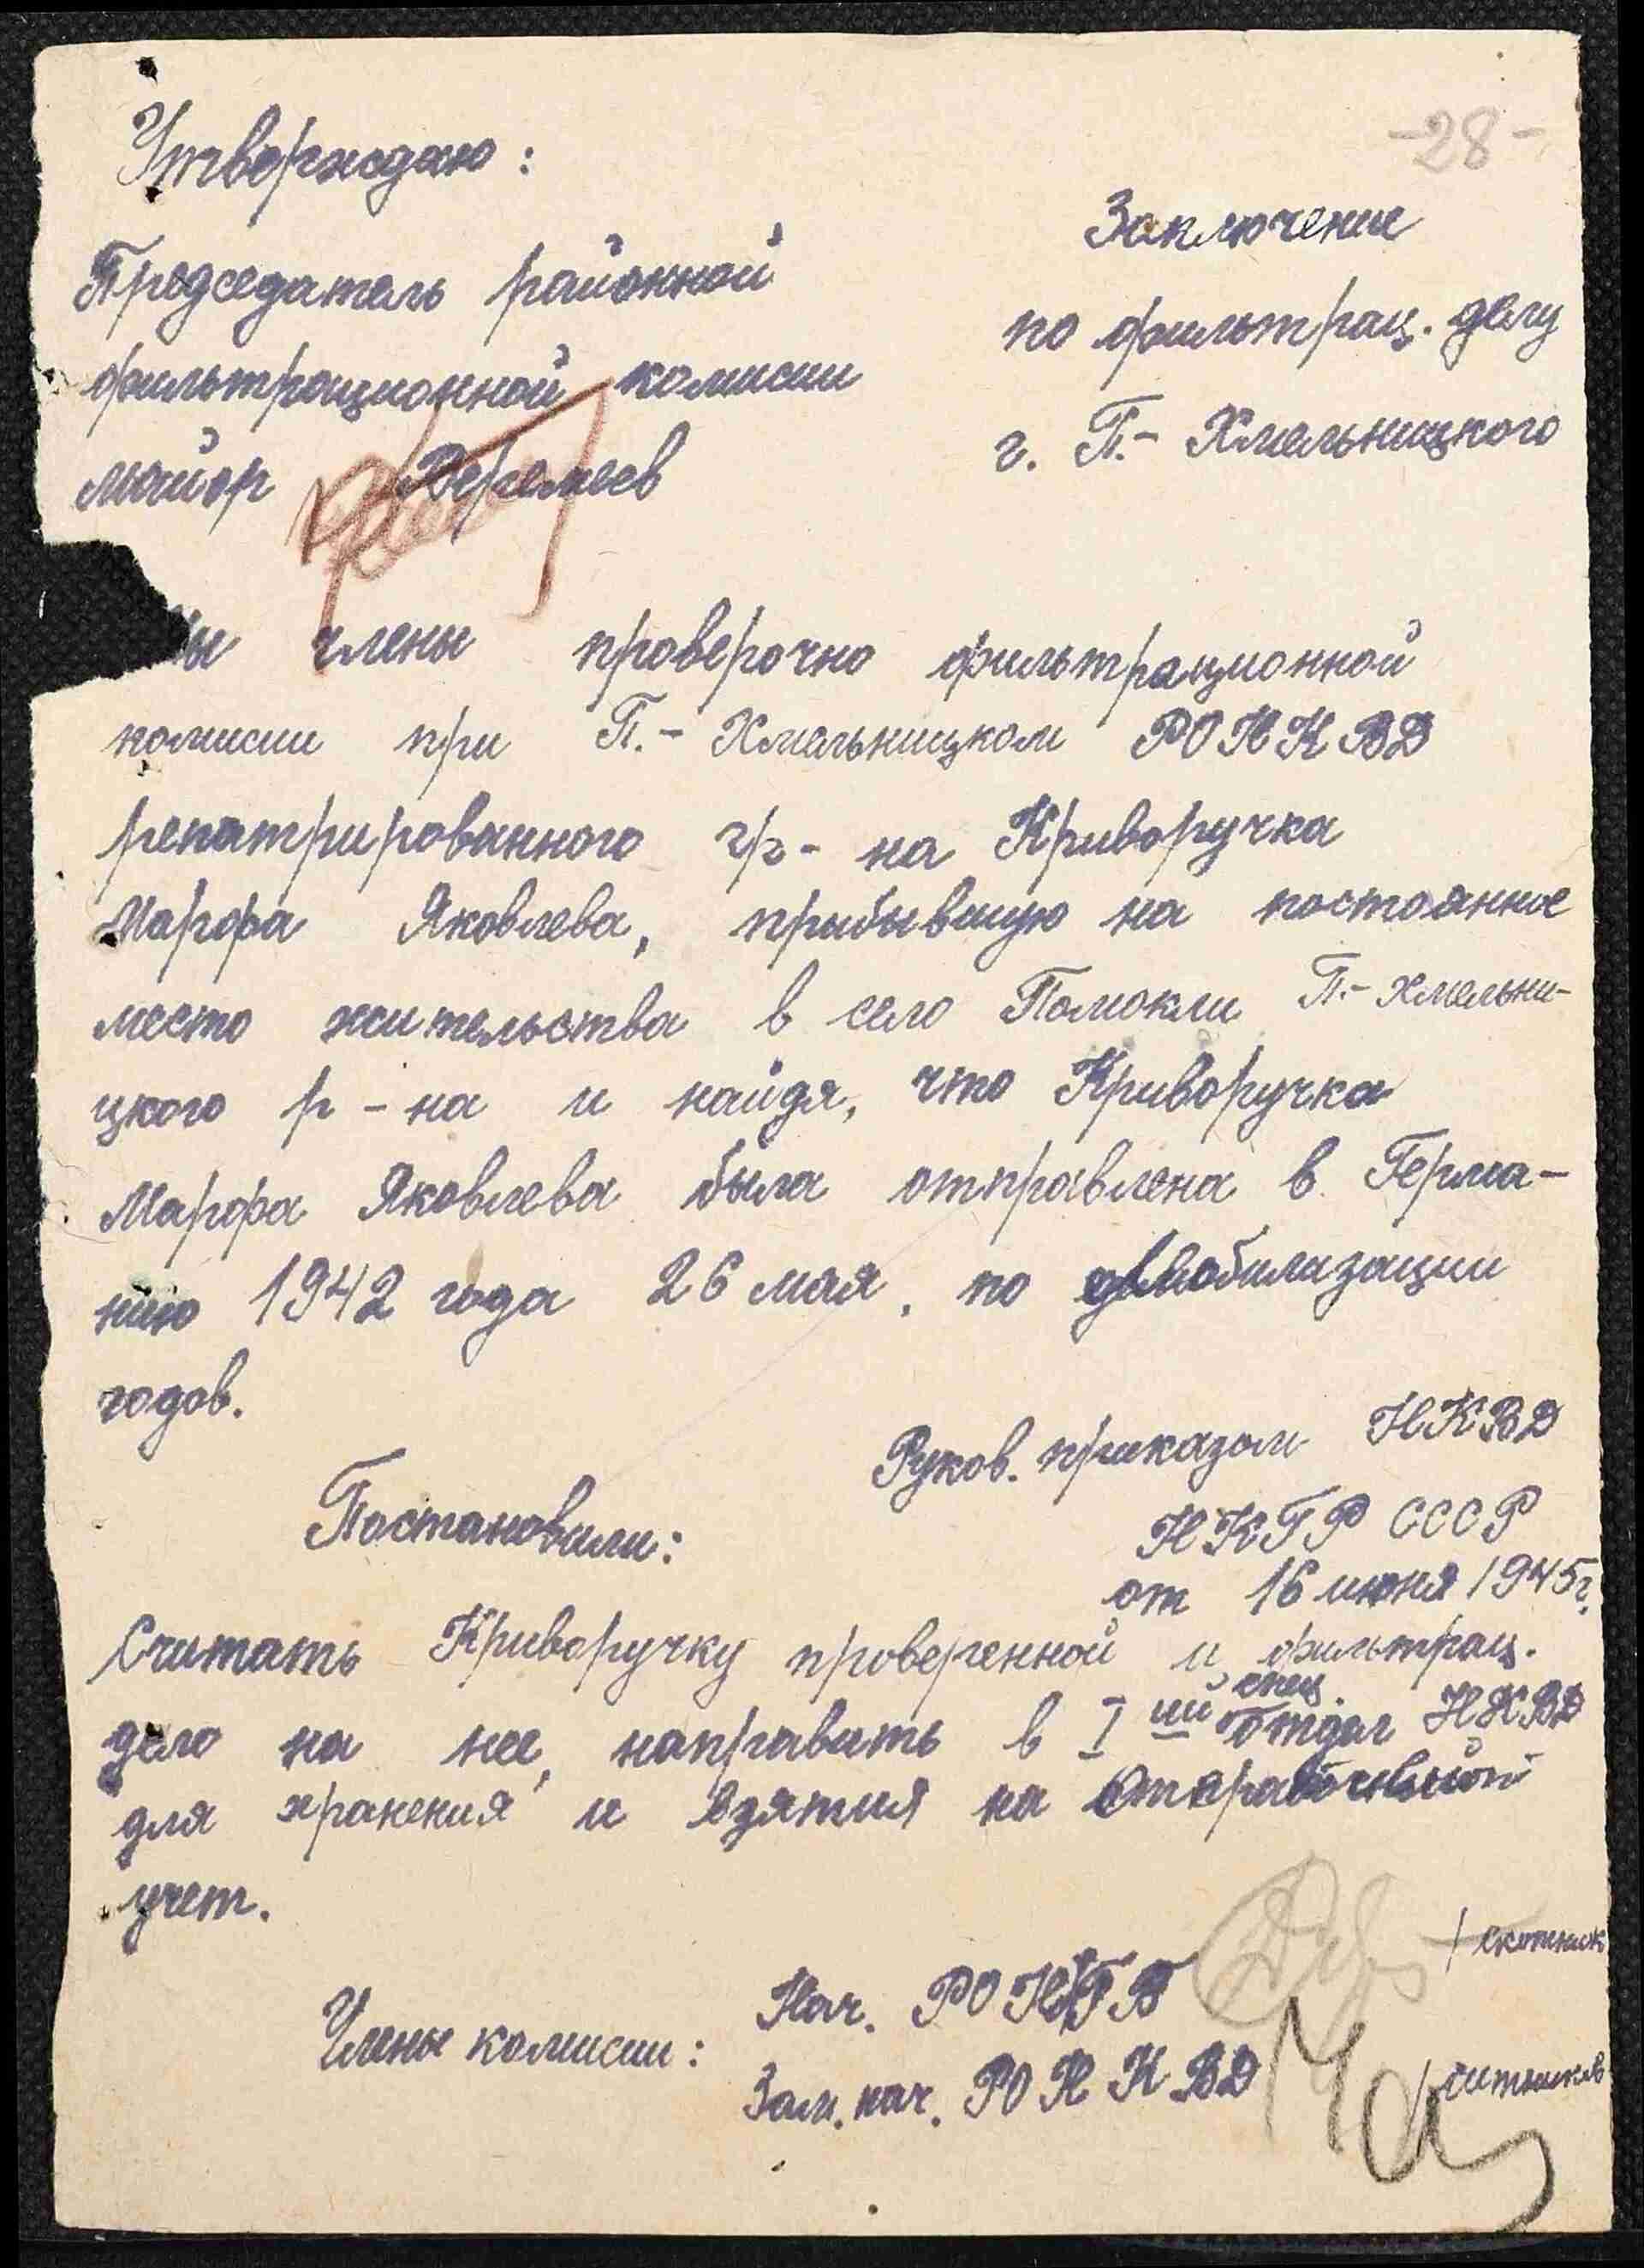 -28-
Утверждаю:
Председатель районной
фильтрационной комисии
майор Веремеев
Заключение
по фильтрац. делу
г. П.- Хмельницкого
ы члены проверочно фильтрационной
комисии при П.- Хмельницком РО НКВД
репатрированного гр-на Криворучка
Марфа Яковлева, прибывшую на постоянное
место жительства в село Помокли П.-Хмельни-
цкого р-на и найдя, что Криворучка
Марфа Яковлева была отправлена в Герма-
нию 1942 года 26 мая, по мобилизации
годов.
Руков. приказом НКВД
НКГР СССР
от 16 июня 1945г.
Постановили:
Считать Криворучку проверенной и фильтрац.
дело на нее, направить в I ый спец. отдел НКВД
для хранения и взятия на
учет.
Члены комисии:
Нач. РО НКГБ / скотник
Зам. нач. РО НКВД / ситников